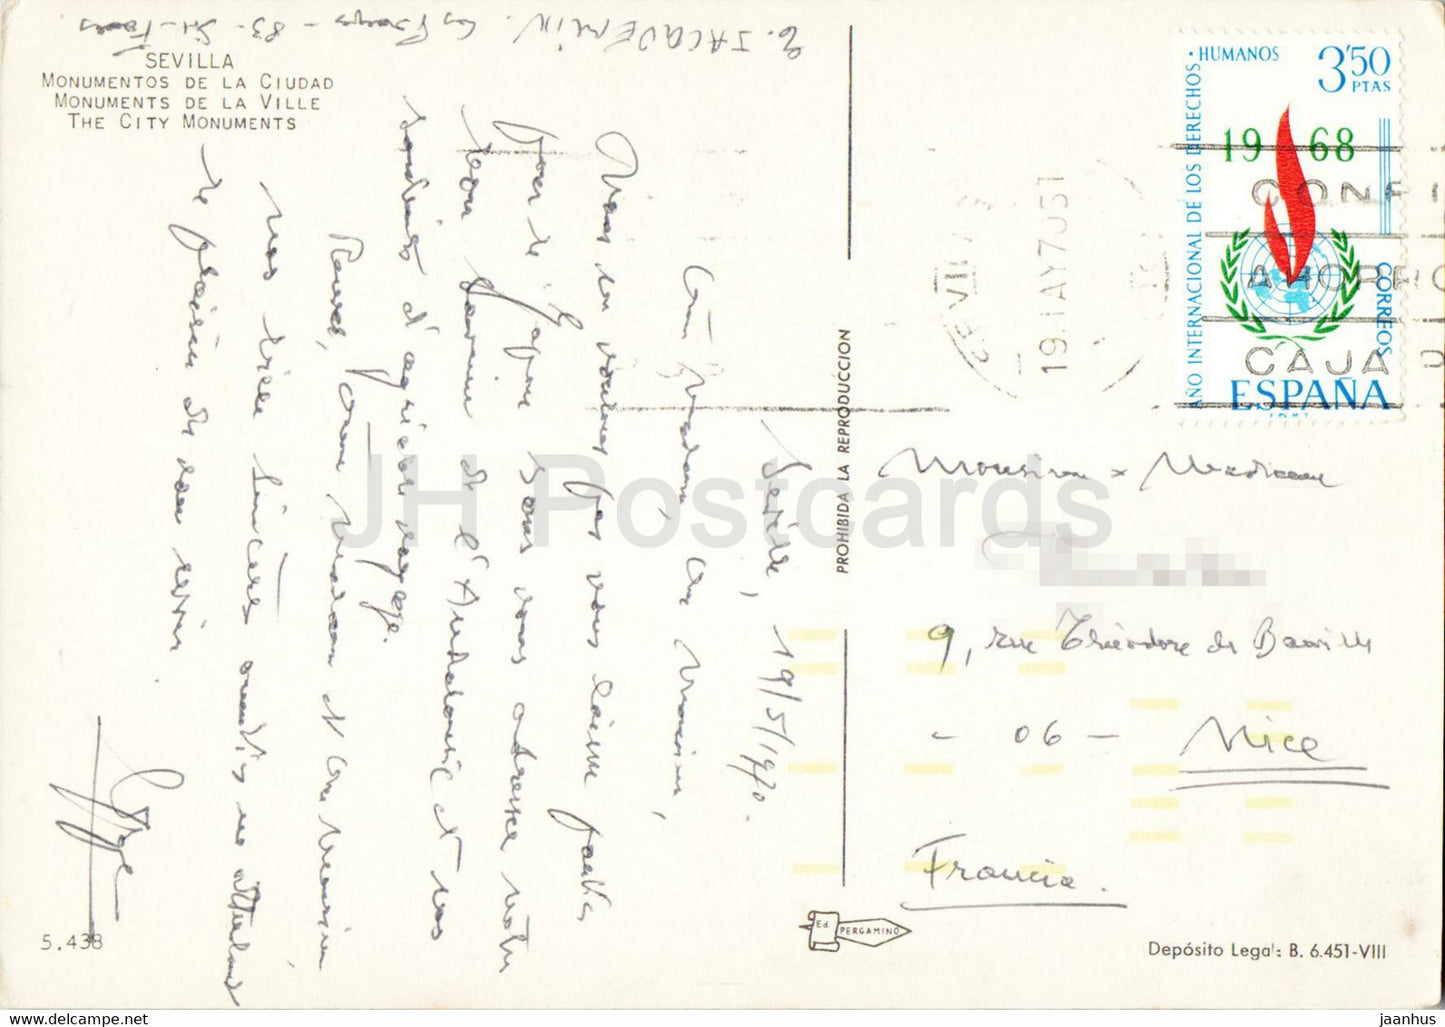 E. JACQUEMIN. Les
SEVILLA
MONUMENTOS DE LA CIUDAD
MONUMENTS DE LA VILLE
THE CITY MONUMENTS
Séville, 19/5/1970.
Cher Madame, cher Monsieur,
Nous ne voulons pas vous laisse
Pour le sans vous adresser notre
bon souvenir de l'Andalousie et nos
souhaits d'agréable voyage.
Recevez, cher Madame et cher Monsieur
nos très sincères amitiés en attendant
le plaisir de vous revoir
5.438
PROHIBIDA LA REPRODUCCION
Ed. PERGAMINO
AÑO INTERNACIONAL DE LOS DERECHOS · HUMANOS
3'50
PTAS
1968
CORREOS
ESPAÑA
F.N.M.T.
SEVILLA
19 MAY 70
AHORRO
CAJA
Monsieur & Madame
9, rue Théodore de Banville
- 06 - Nice
Francia.
Depósito Legal: B. 6.451-VIII
JH Postcards
https://jhpostcards.com
jaanhus